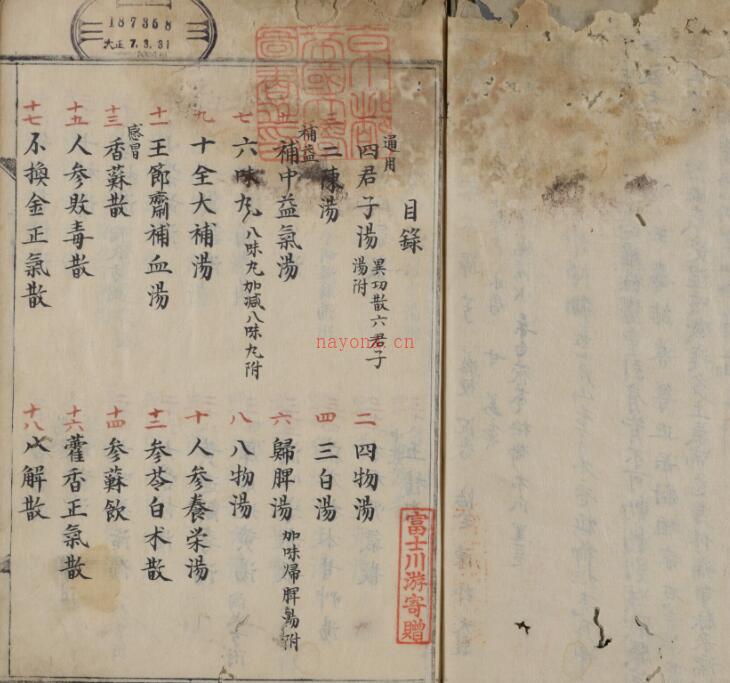 187368
大正 7.3.31
京都帝國大學圖書之印
目錄
通用
四君子湯 異功散六君子湯附
二 四物湯
三 二陳湯
四 三白湯
補益
五 補中益氣湯
六 歸脾湯 加味帰脾湯附
七 六味丸 八味丸加減八味丸附
八 八物湯
九 十全大補湯
十 人參養栄湯
十一 王節齋補血湯
十二 參苓白朮散
感冒
十三 香蘇散
十四 參蘇飲
十五 人參敗毒散
十六 藿香正氣散
十七 不換金正氣散
十八 火解散
富士川游寄贈
nayona.cn